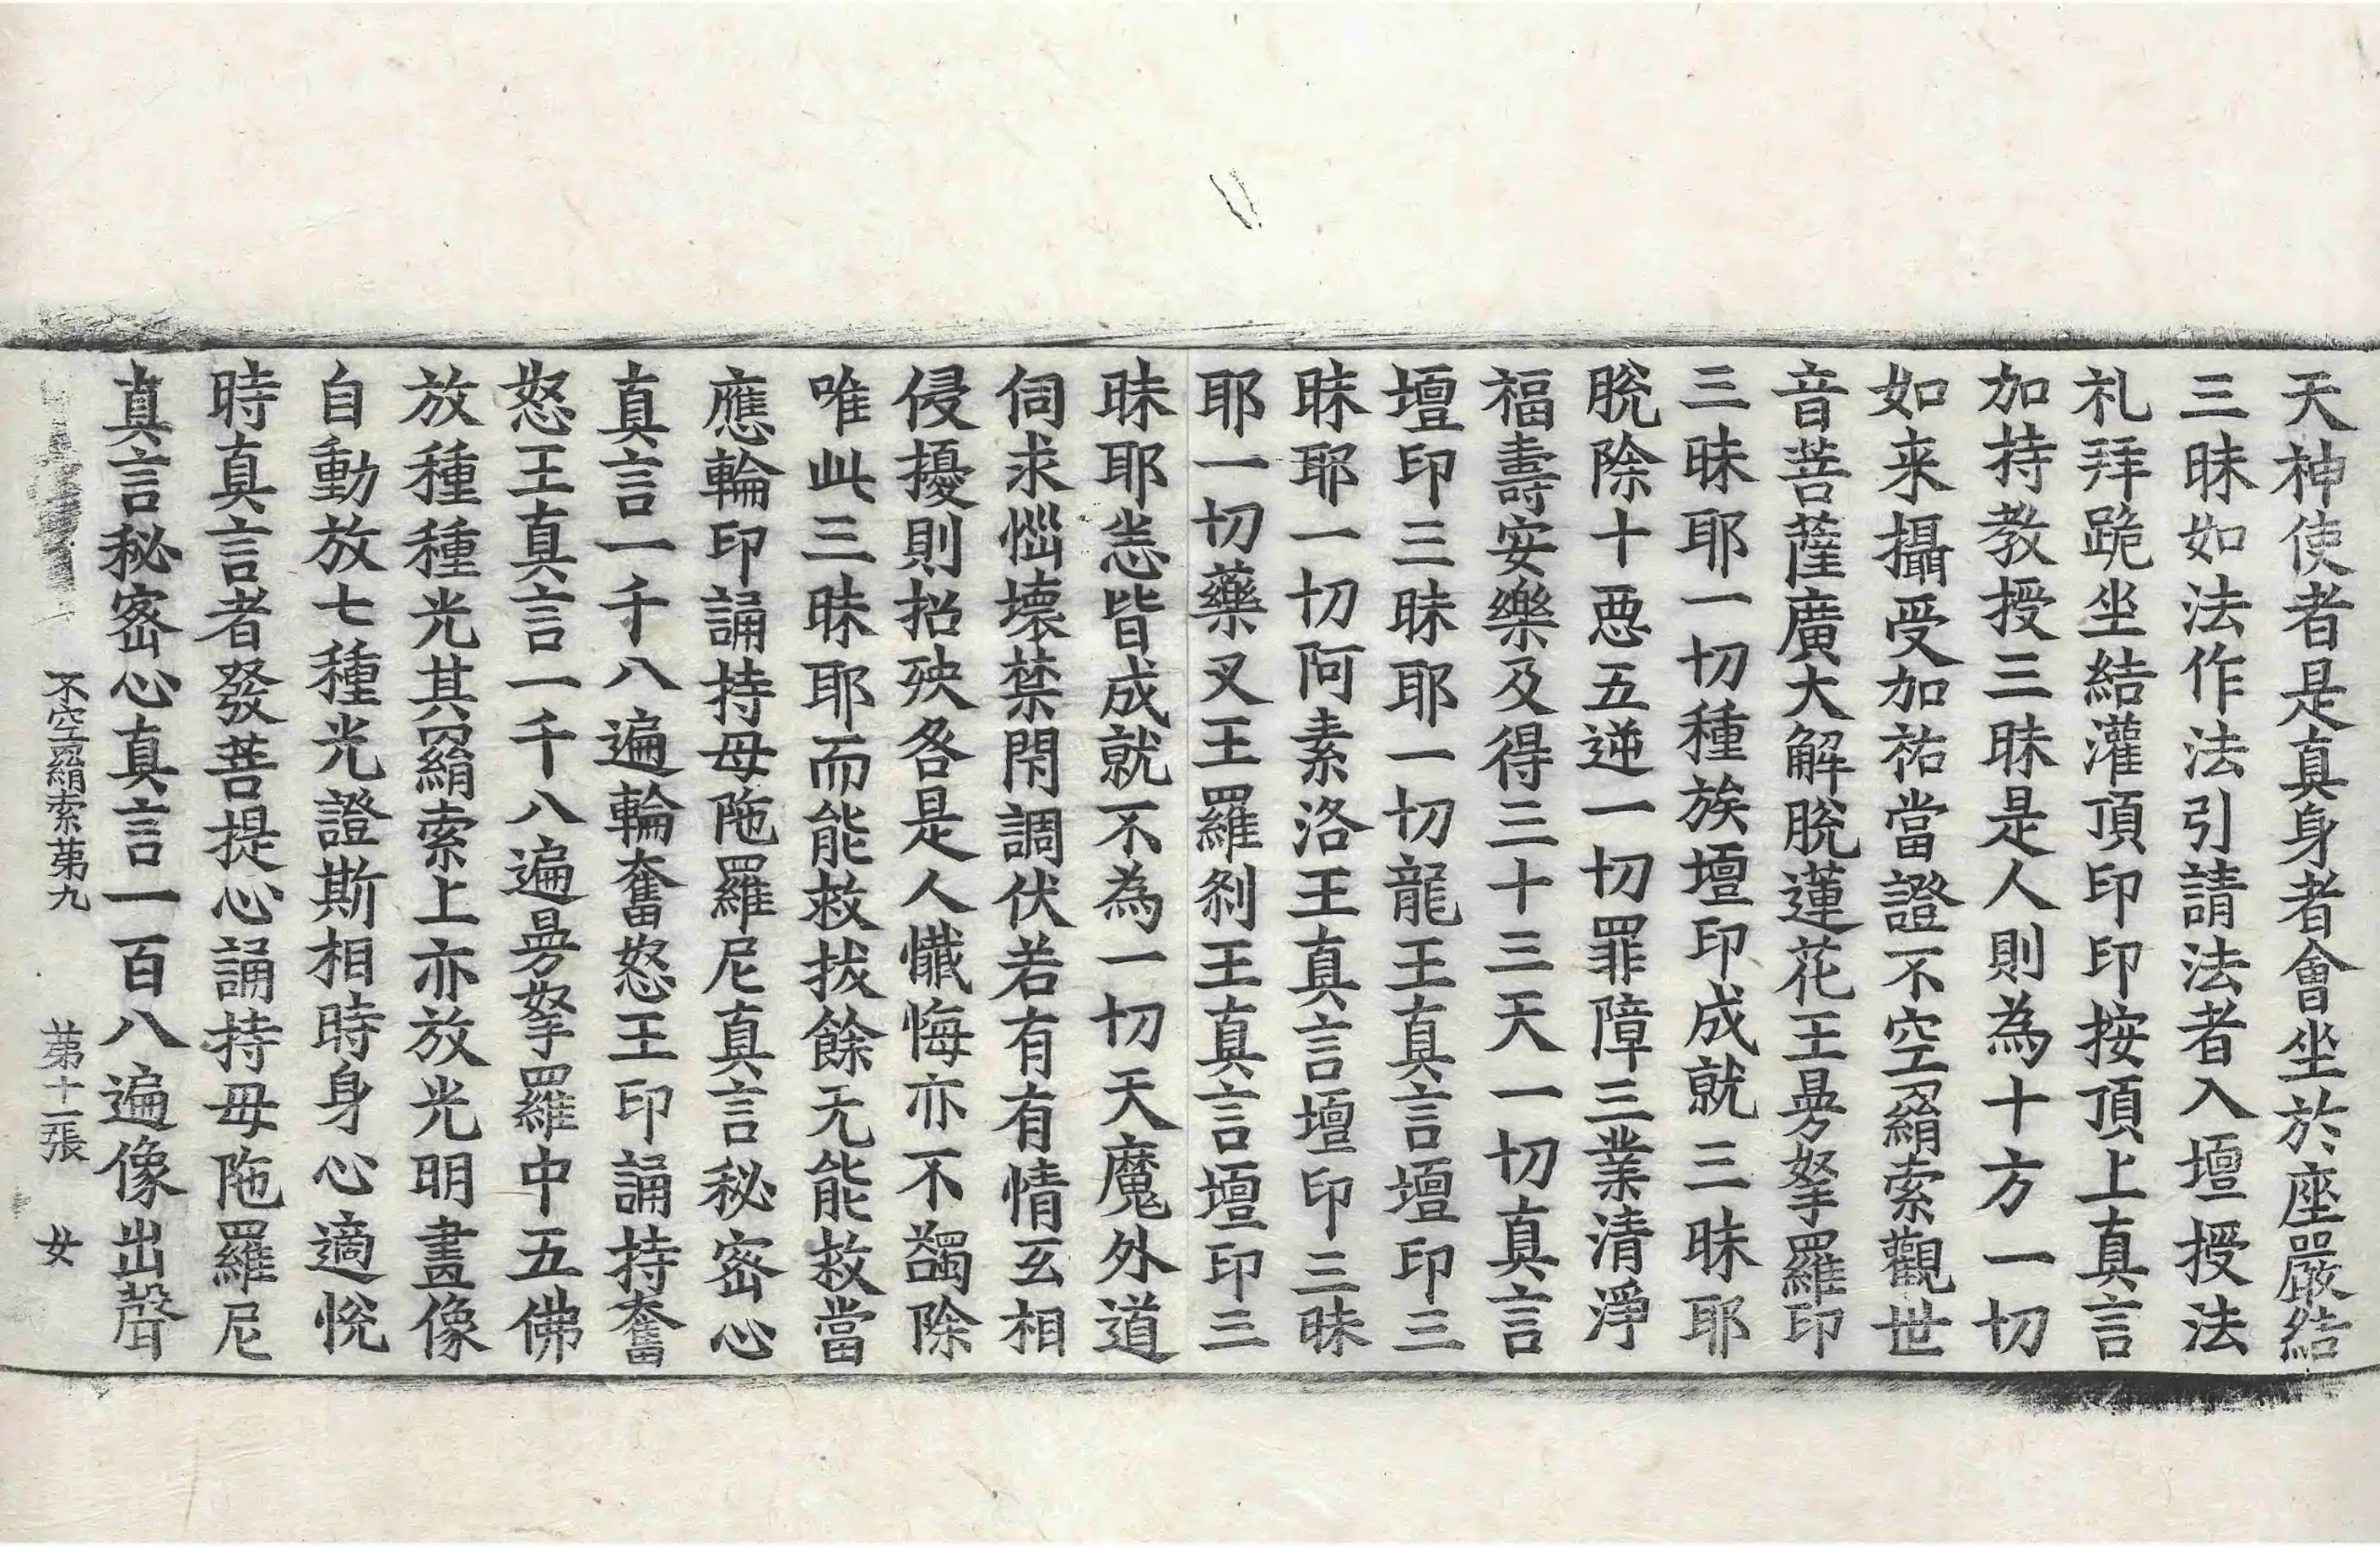 天神使者是真身者會坐於座嚴結
三昧如法作法引請法者入壇授法
礼拜跪坐結灌頂印印按頂上真言
加持教授三昧是人則為十方一切
如来攝受加祐當證不空羂索觀世
音菩薩廣大解脫蓮花王旖拏羅印
三昧耶一切種族壇印成就三昧耶
脫除十惡五逆一切罪障三業清淨
福壽安樂及得三十三天一切真言
壇印三昧耶一切龍王真言壇印三
昧耶一切阿素洛王真言壇印三昧
耶一切藥叉王羅剎王真言壇印三
昧耶恙皆成就不為一切天魔外道
伺求惱壞禁閇調伏若有有情互相
侵擾則招殃咎是人懺悔亦不蠲除
唯此三昧耶而能救拔餘无能救當
應輪印誦持母陁羅尼真言秘密心
真言一千八遍輪奮怒王印誦持奮
怒王真言一千八遍曼拏羅中五佛
放種種光其羂索上亦放光明畫像
自動放七種光證斯相時身心適悅
時真言者發菩提心誦持母陁羅尼
真言秘密心真言一百八遍像出聲
不空羂索苐九 苐十二張 女